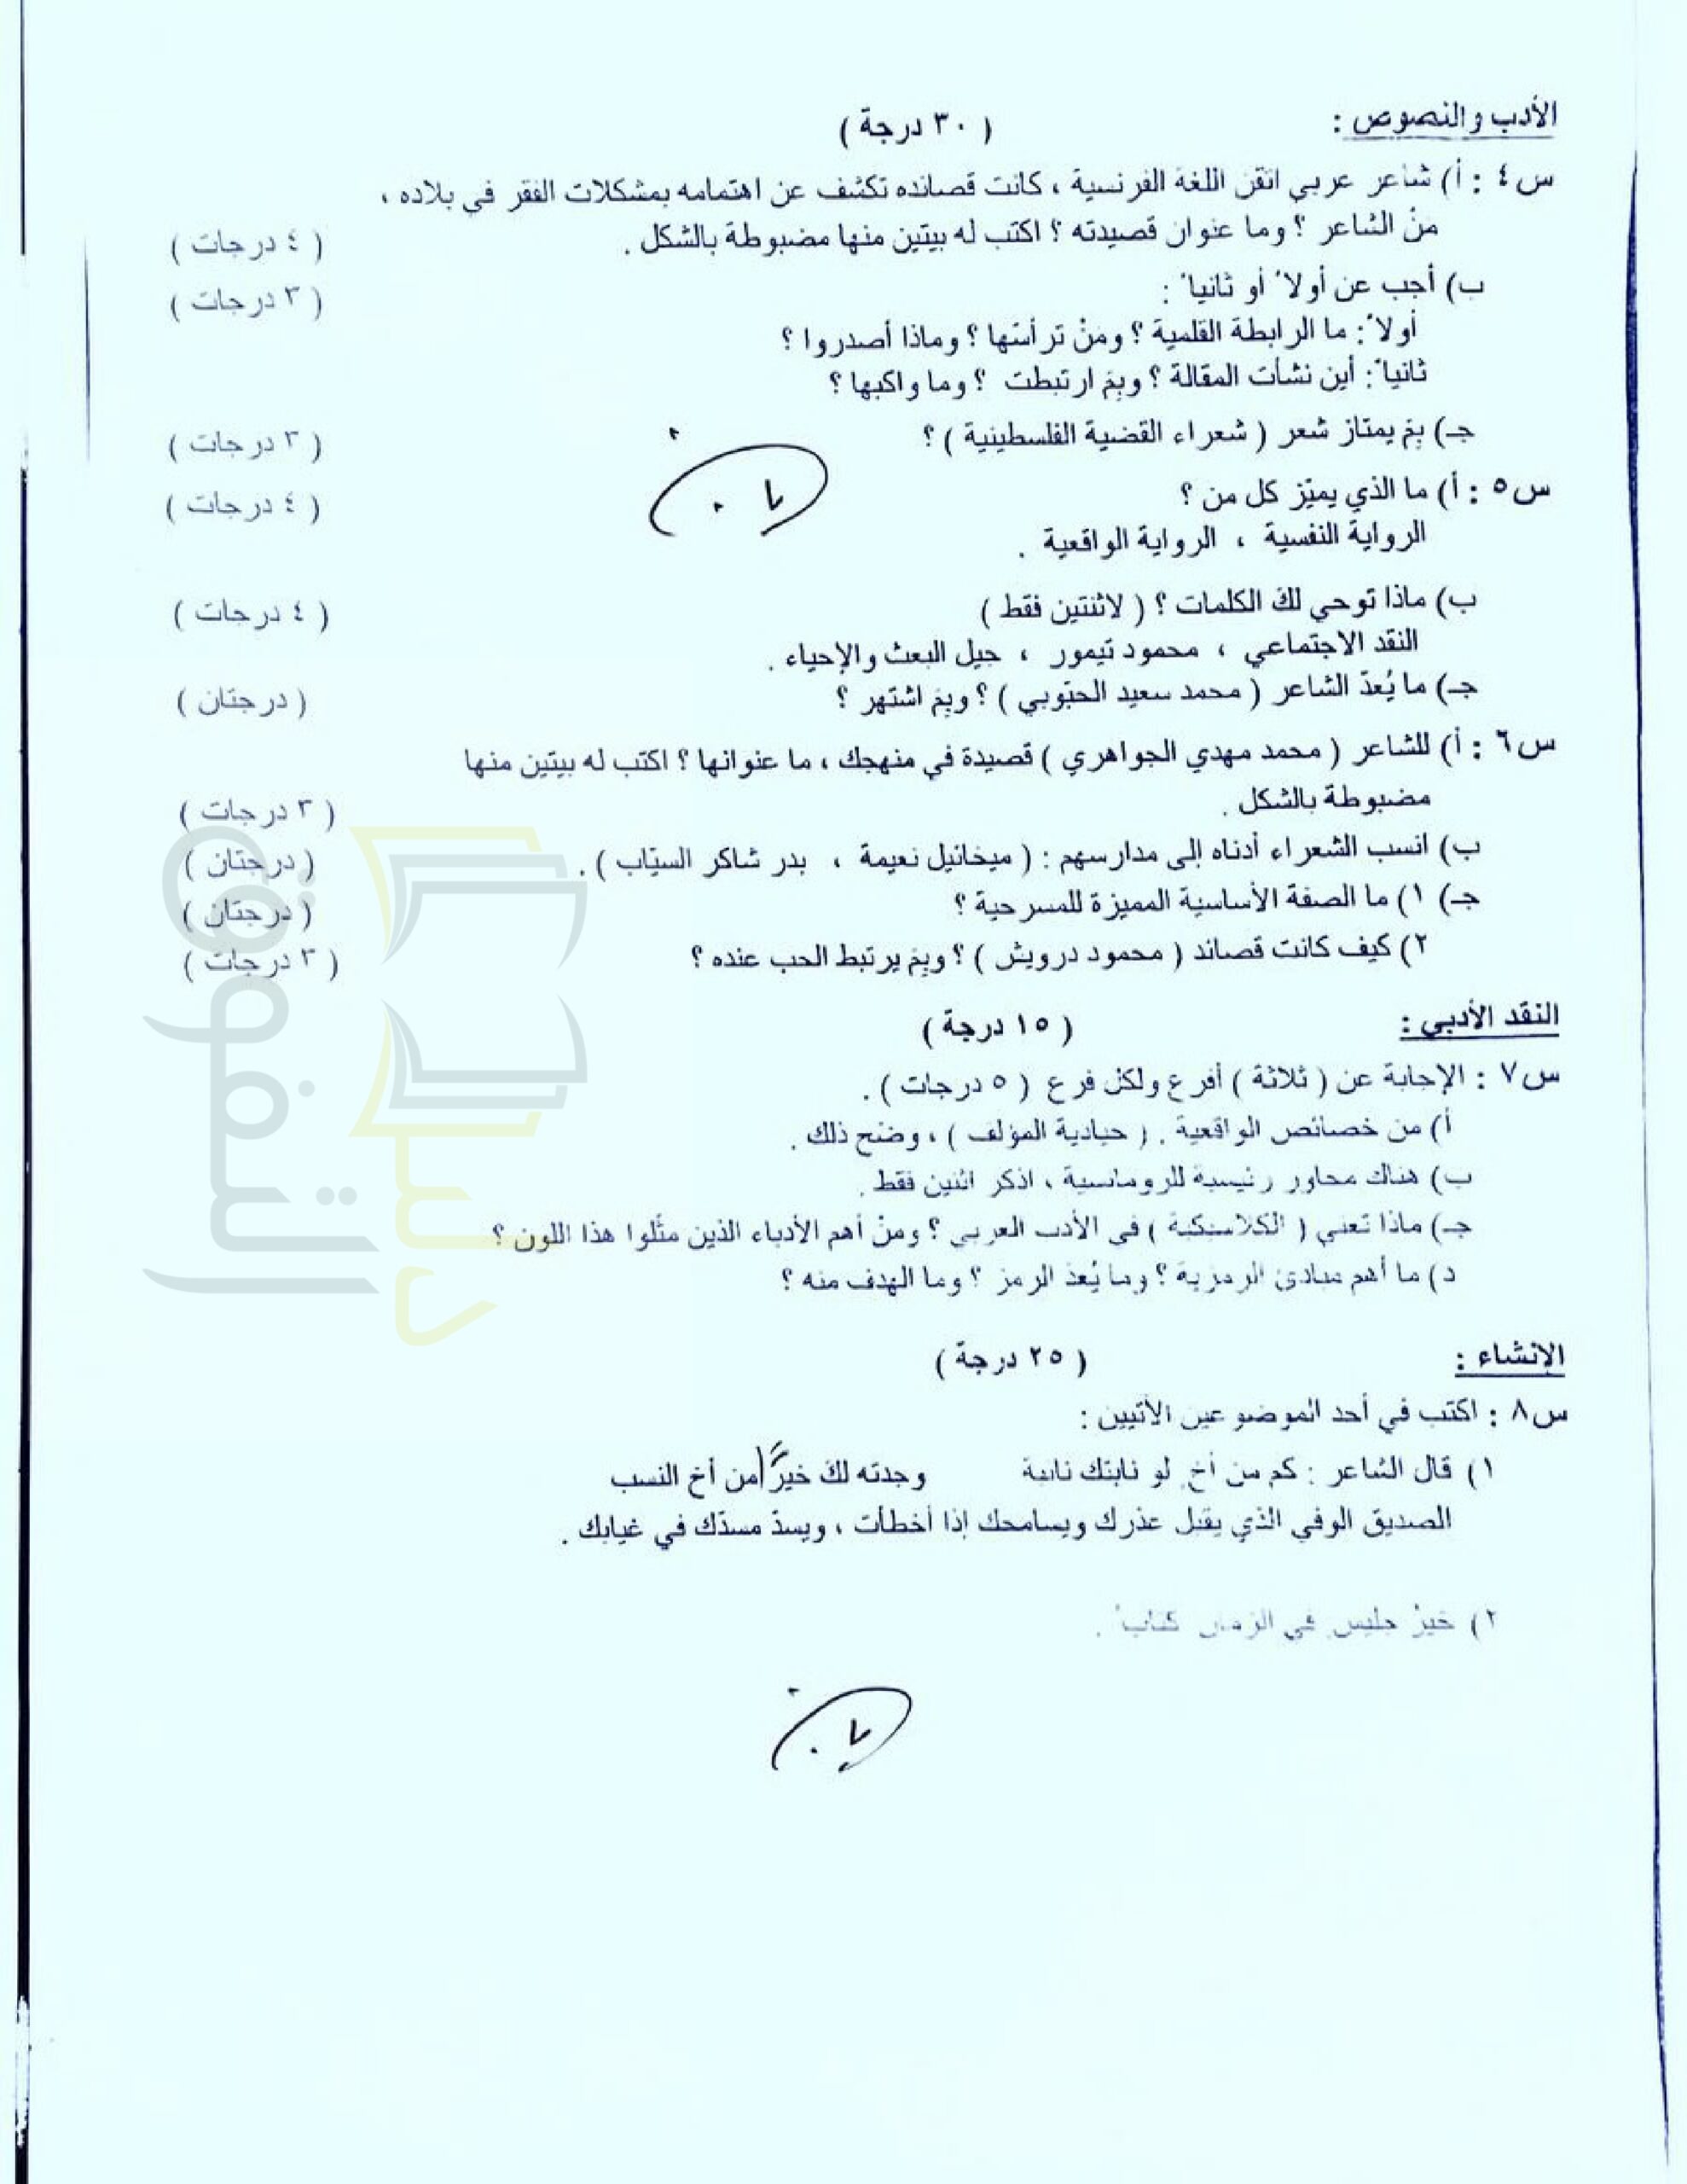 الأدب والنصوص : ( ٣٠ درجة )
س٤ : أ) شاعر عربي اتقن اللغة الفرنسية ، كانت قصائده تكشف عن اهتمامه بمشكلات الفقر في بلاده ،
مَنْ الشاعر ؟ وما عنوان قصيدته ؟ اكتب له بيتين منها مضبوطة بالشكل . ( ٤ درجات )
ب) أجب عن أولاً أو ثانياً : ( ٣ درجات )
أولاً : ما الرابطة القلمية ؟ ومَنْ ترأسَها ؟ وماذا أصدروا ؟
ثانياً : أين نشأت المقالة ؟ وبِمَ ارتبطت ؟ وما واكبها ؟
جـ) بِمَ يمتاز شعر ( شعراء القضية الفلسطينية ) ؟ ( ٣ درجات )
س٥ : أ) ما الذي يميّز كل من ؟ ( ٤ درجات )
الرواية النفسية ، الرواية الواقعية .
ب) ماذا توحي لك الكلمات ؟ ( لاثنتين فقط ) ( ٤ درجات )
النقد الاجتماعي ، محمود تيمور ، جيل البعث والإحياء .
جـ) ما يُعدّ الشاعر ( محمد سعيد الحبّوبي ) ؟ وبِمَ اشتهر ؟ ( درجتان )
س٦ : أ) للشاعر ( محمد مهدي الجواهري ) قصيدة في منهجك ، ما عنوانها ؟ اكتب له بيتين منها
مضبوطة بالشكل . ( ٣ درجات )
ب) انسب الشعراء أدناه إلى مدارسهم : ( ميخائيل نعيمة ، بدر شاكر السيّاب ) . ( درجتان )
جـ) ١) ما الصفة الأساسية المميزة للمسرحية ؟ ( درجتان )
٢) كيف كانت قصائد ( محمود درويش ) ؟ وبِمَ يرتبط الحب عنده ؟ ( ٣ درجات )
النقد الأدبي : ( ١٥ درجة )
س٧ : الإجابة عن ( ثلاثة ) أفرع ولكل فرع ( ٥ درجات ) .
أ) من خصائص الواقعية . ( حيادية المؤلف ) ، وضّح ذلك .
ب) هناك محاور رئيسية للرومانسية ، اذكر اثنين فقط .
جـ) ماذا تعني ( الكلاسيكية ) في الأدب العربي ؟ ومَنْ أهم الأدباء الذين مثّلوا هذا اللون ؟
د) ما أهم مبادئ الرمزية ؟ وما يُعدّ الرمز ؟ وما الهدف منه ؟
الإنشاء : ( ٢٥ درجة )
س٨ : اكتب في أحد الموضوعين الآتيين :
١) قال الشاعر : كم من أخٍ لو نابتك نائبة وجدته لك خيرًا من أخ النسب
الصديق الوفي الذي يقبل عذرك ويسامحك إذا أخطأت ، ويسدّ مسدّك في غيابك .
٢) خيرُ جليسٍ في الزمانِ كتابُ .
دليل
التفوق